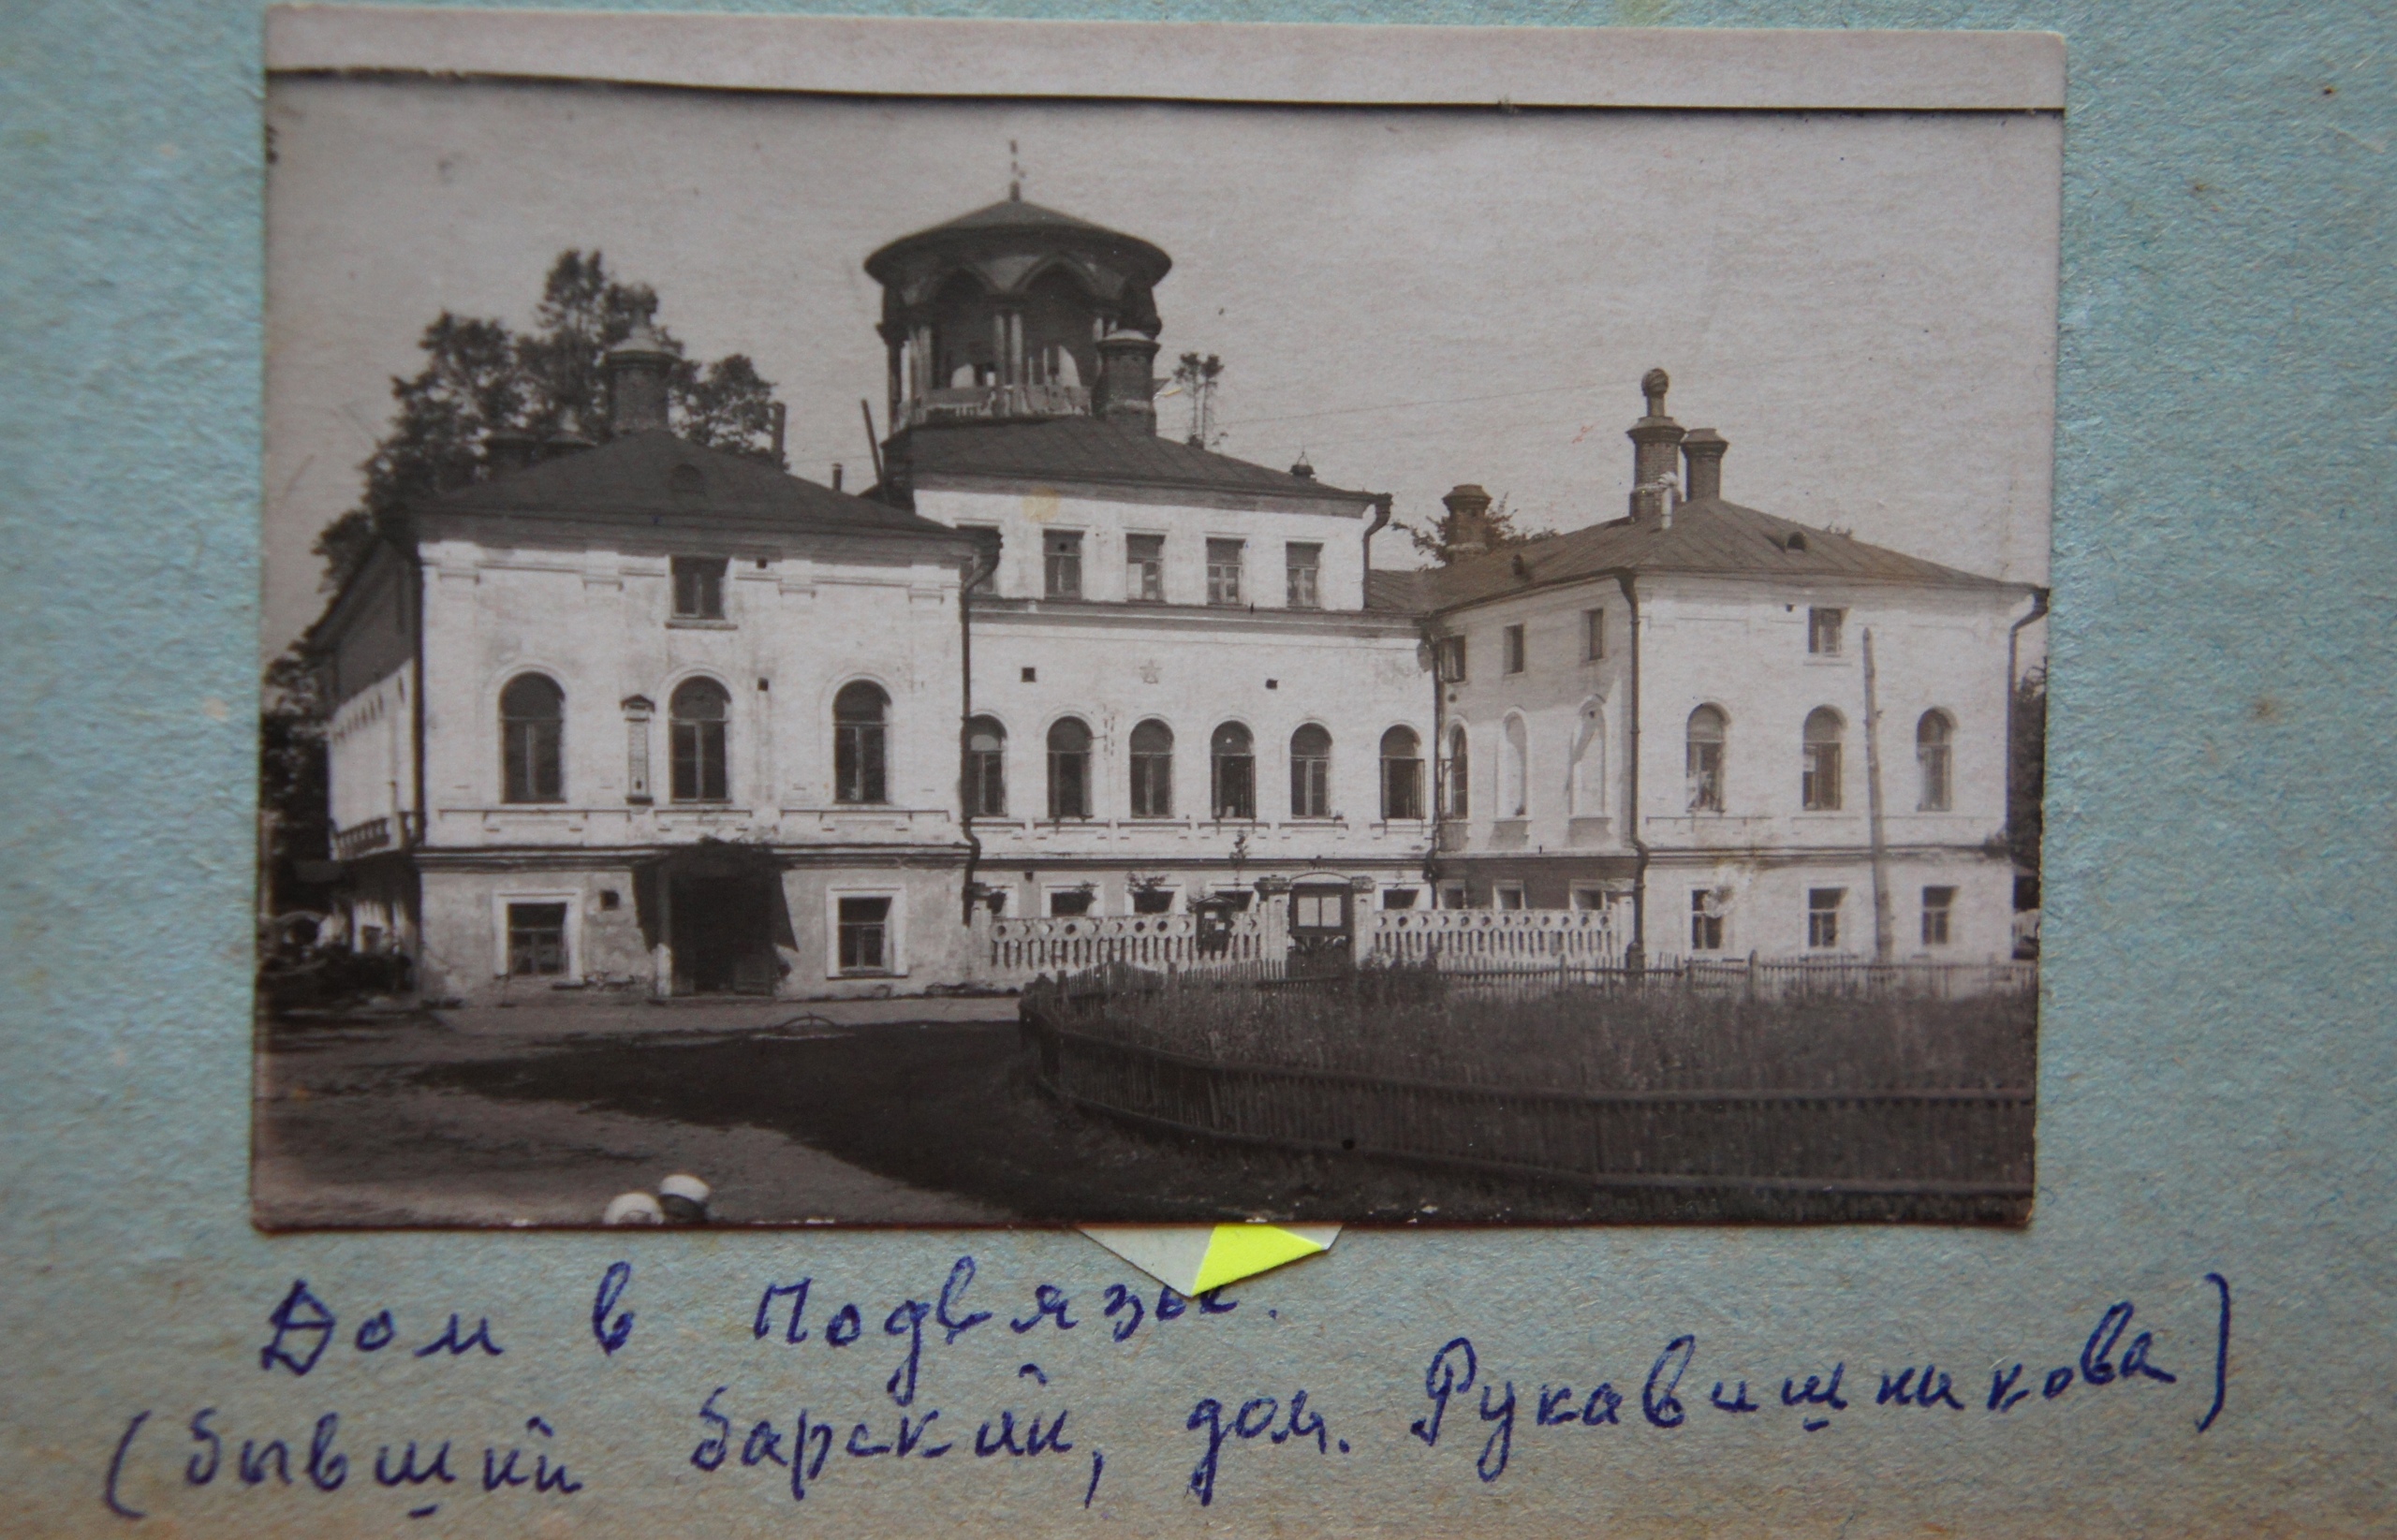 Дом в Подвязье.
(бывший барский, дом. Рукавишникова)